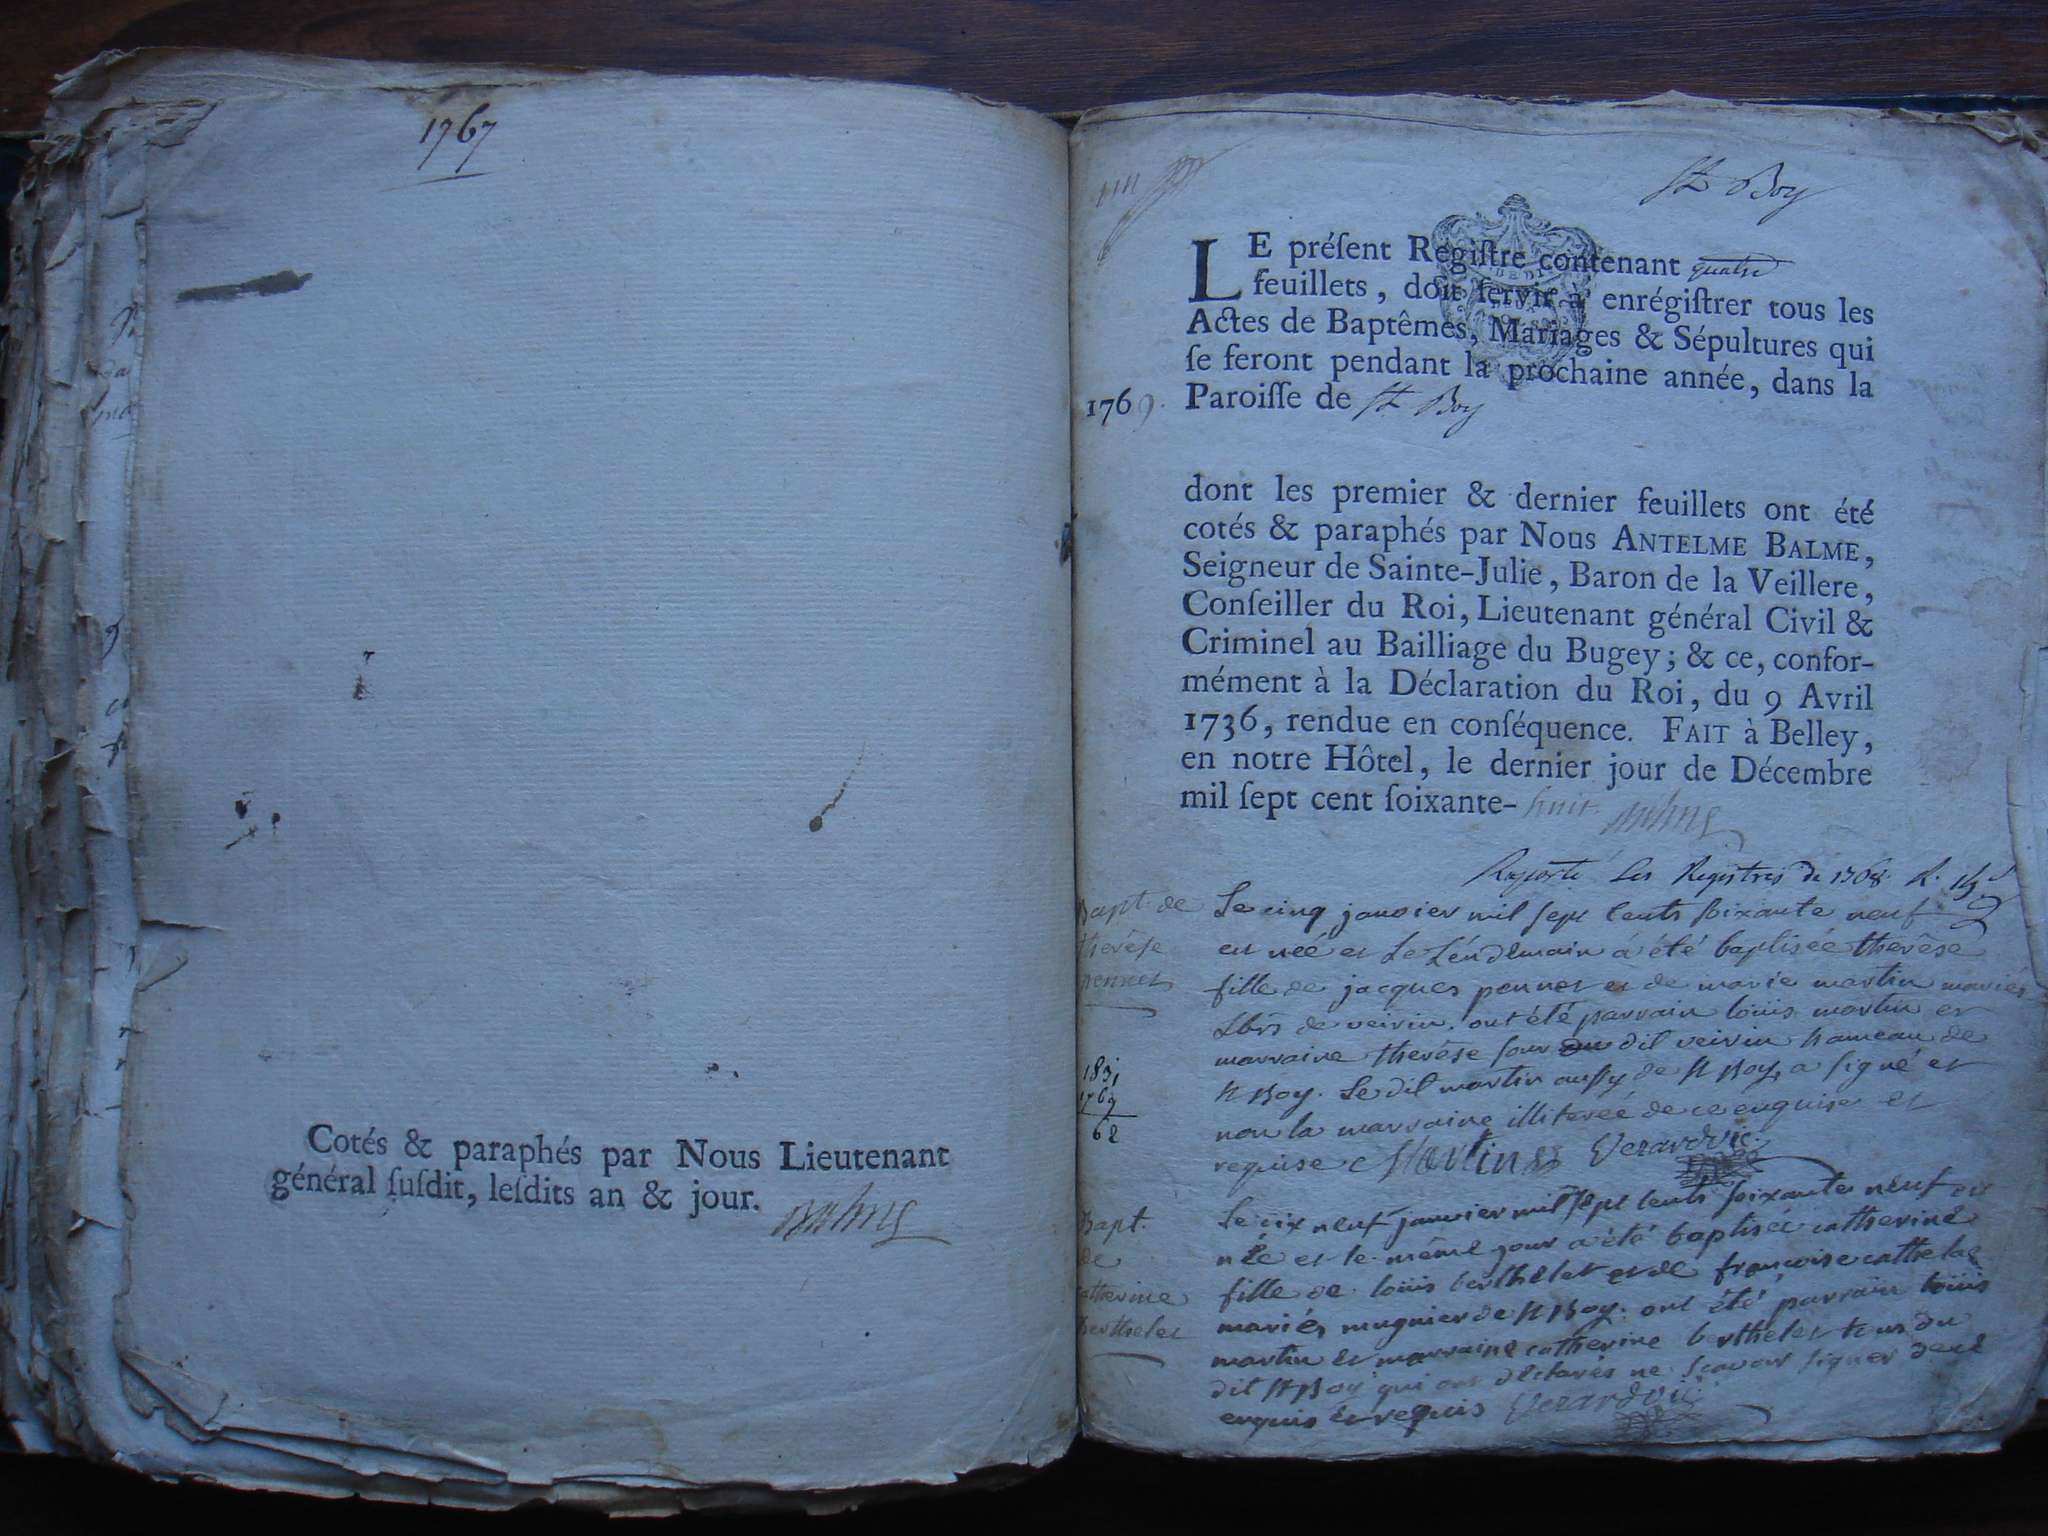 1767
Cotés & paraphés par Nous Lieutenant
général ſuſdit, leſdits an & jour.
St Boy
LE préſent Regiſtre contenant quatre
feuillets, doit ſervir à enrégiſtrer tous les
Actes de Baptêmes, Mariages & Sépultures qui
ſe feront pendant la prochaine année, dans la
1769. Paroiſſe de St Boy
dont les premier & dernier feuillets ont été
cotés & paraphés par Nous ANTELME BALME,
Seigneur de Sainte-Julie, Baron de la Veillere,
Conſeiller du Roi, Lieutenant général Civil &
Criminel au Bailliage du Bugey; & ce, confor-
mément à la Déclaration du Roi, du 9 Avril
1736, rendue en conſéquence. FAIT à Belley,
en notre Hôtel, le dernier jour de Décembre
mil ſept cent ſoixante-huit
Raporté Les Registres de 1768
Bapt. de
therése
pennet
Le cinq janvier mil sept cents soixante neuf
est née et Le Léndemain a été baptisée therèse
fille de jacques pennet et de marie martin mariés
de veirin. ont été parrain loüis martin et
marraine therèse dil veirin hameau de
st Boy. Le dil martin aussy de st Boy, a signé et
non la marraine illitereé de ce enquise et
requise Martin Verardvic.
1831
1769
62
Bapt.
de
catherine
berthelet
Le dix neuf janvier mil sept cents soixante neuf est
née et le même jour a été baptisée catherine
fille de loüis berthelet et de francoise cathelas
mariés mugnier de st Boy. ont été parrain loüis
martin et marraine catherine berthelet tous du
dil st Boy qui ont déclarés ne scavoir signer de ce
enquis et requis Verardvic